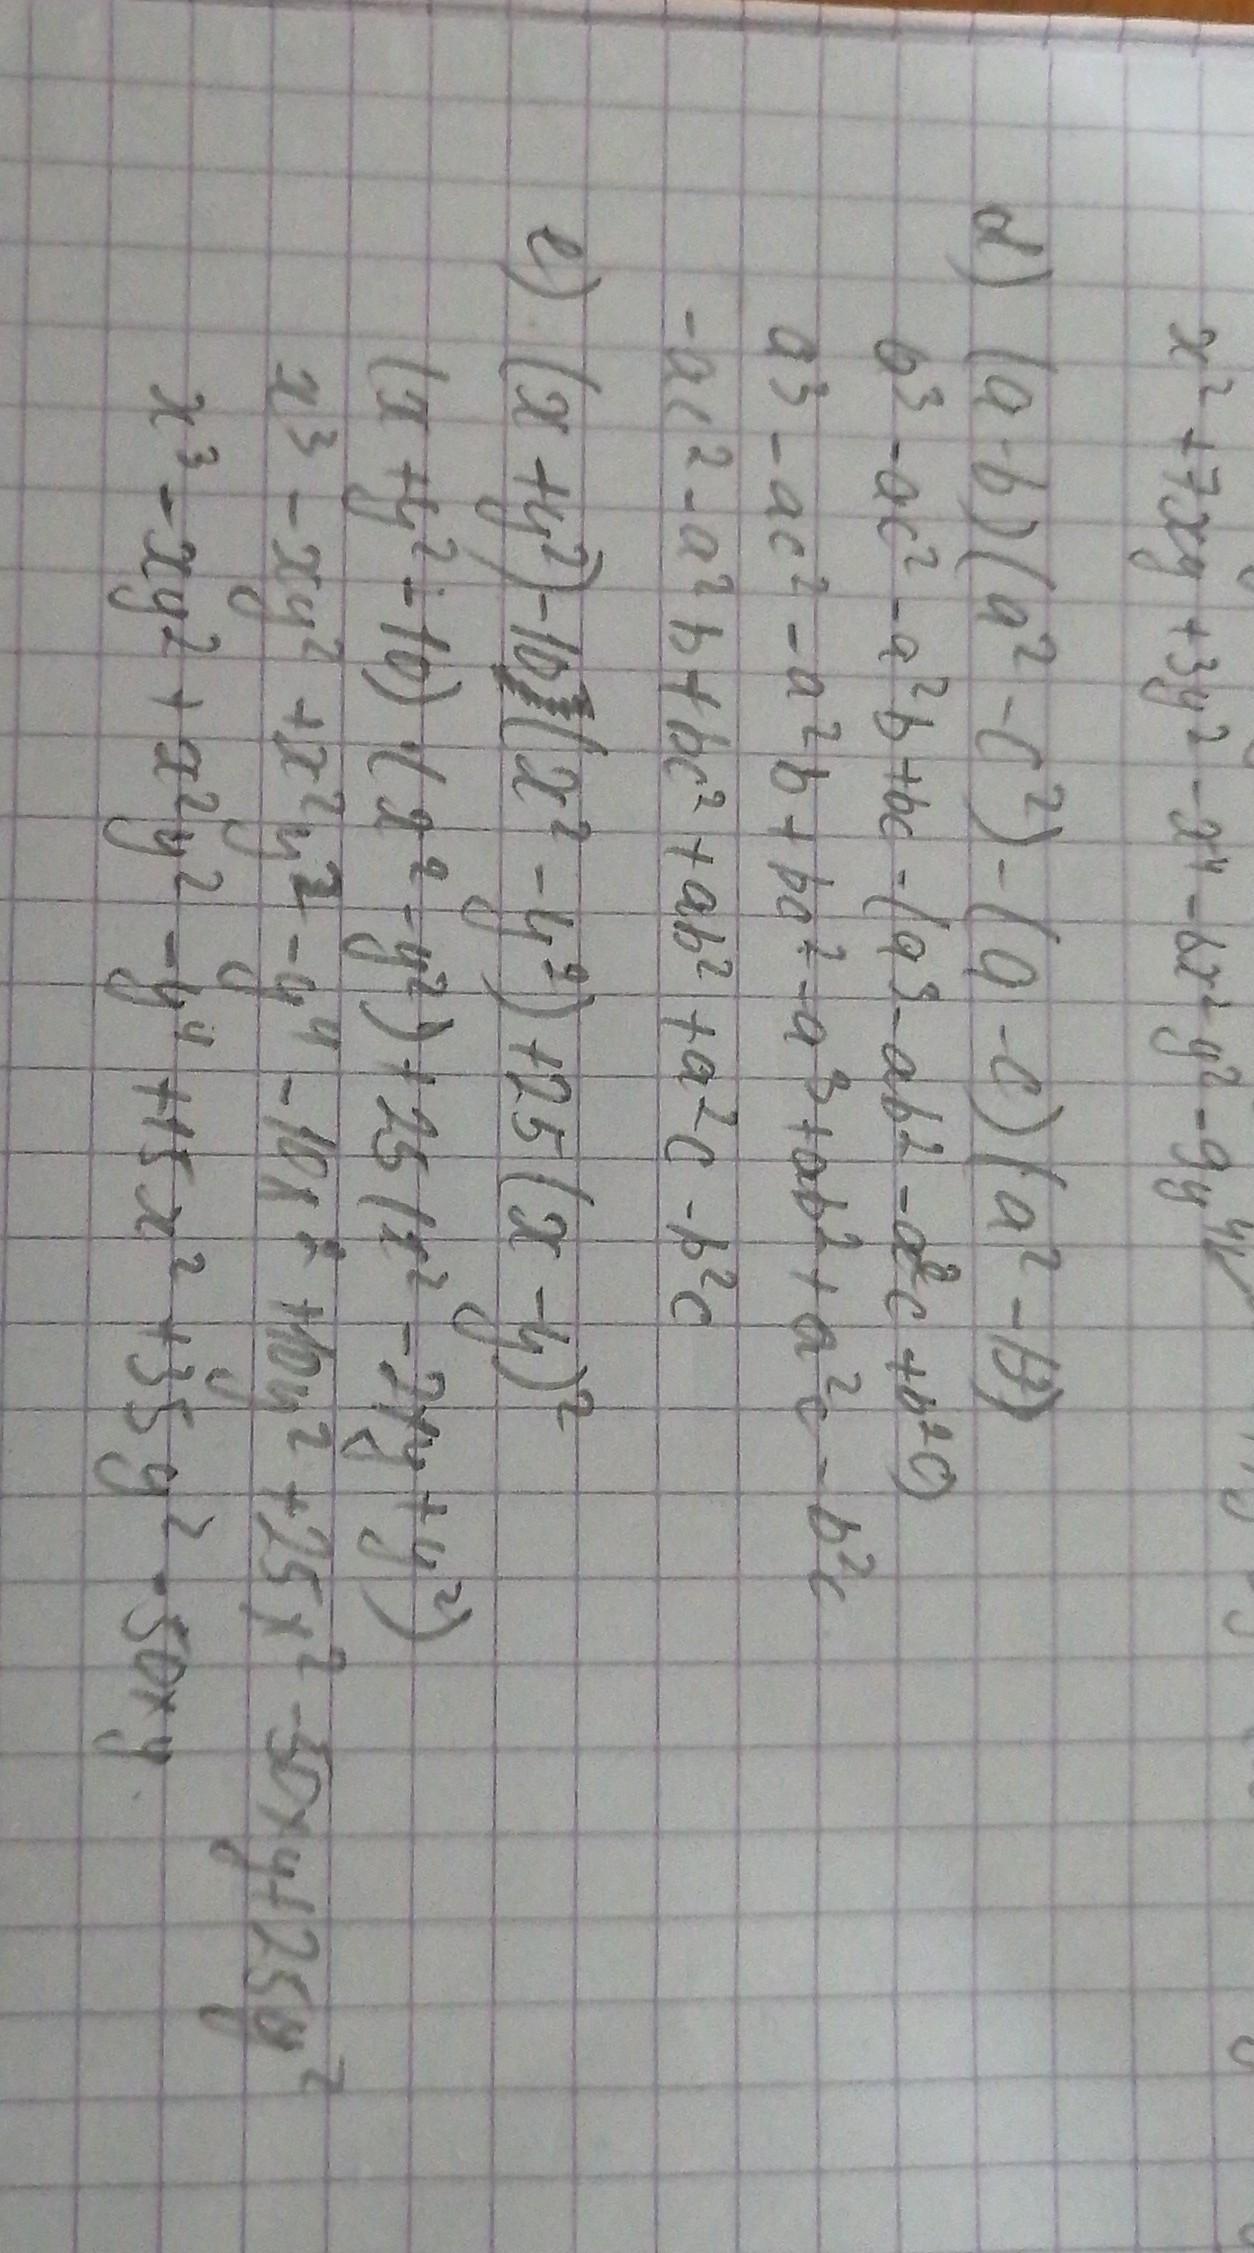 x² + 7xy + 3y² - x⁴ - 6x²y² - 9y⁴
d) (a-b)(a² - c²) - (a - c)(a² - b²)
b³ - ac² - a²b + bc - (a³ - ab² - a²c + b²c)
a³ - ac² - a²b + bc² - a³ + ab² + a²c - b²c
-ac² - a²b + bc² + ab² + a²c - b²c
e) (x + y²) - 10 (x² - y²) + 25(x - y)²
(x + y² - 10) · (x² - y²) + 25(x² - 2xy + y²)
x³ - xy² + x²y² - y⁴ - 10x² + 10y² + 25x² - 50xy + 25y²
x³ - xy² + x²y² - y⁴ + 15x² + 35y² - 50xy